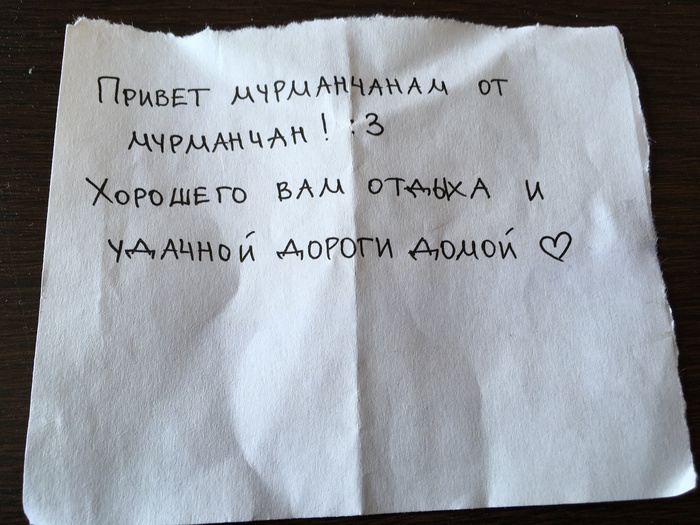 Привет мурманчанам от
мурманчан! :3
Хорошего вам отдыха и
удачной дороги домой ♡